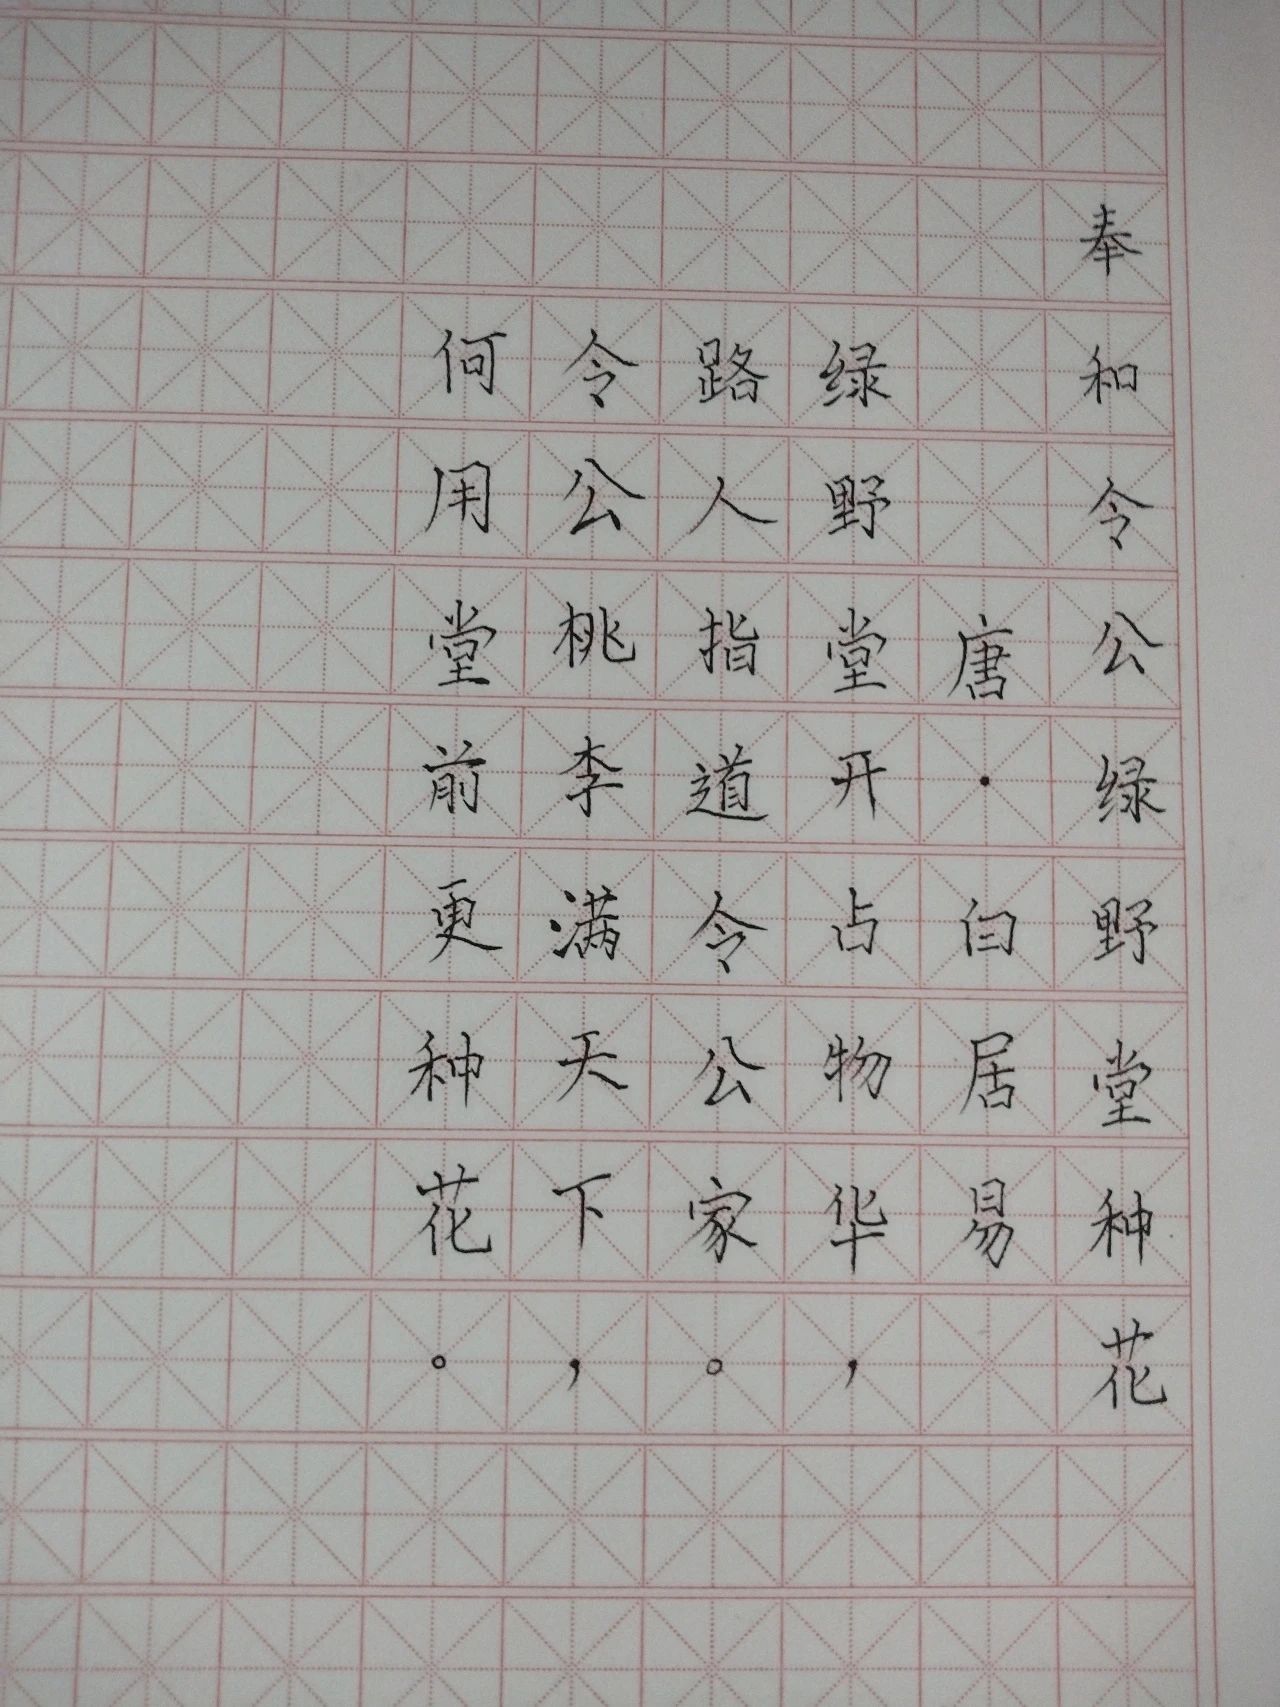 奉和令公绿野堂种花
唐·白居易
绿野堂开占物华，
路人指道令公家。
令公桃李满天下，
何用堂前更种花。